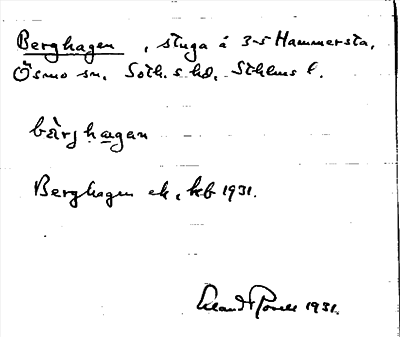 Berghagen, stuga å 3-5 Hammersta,
Ösmo sn, Soth. s hd, Sthlms l.
bärjhagan
Berghagen ek, kb 1931.
1931.